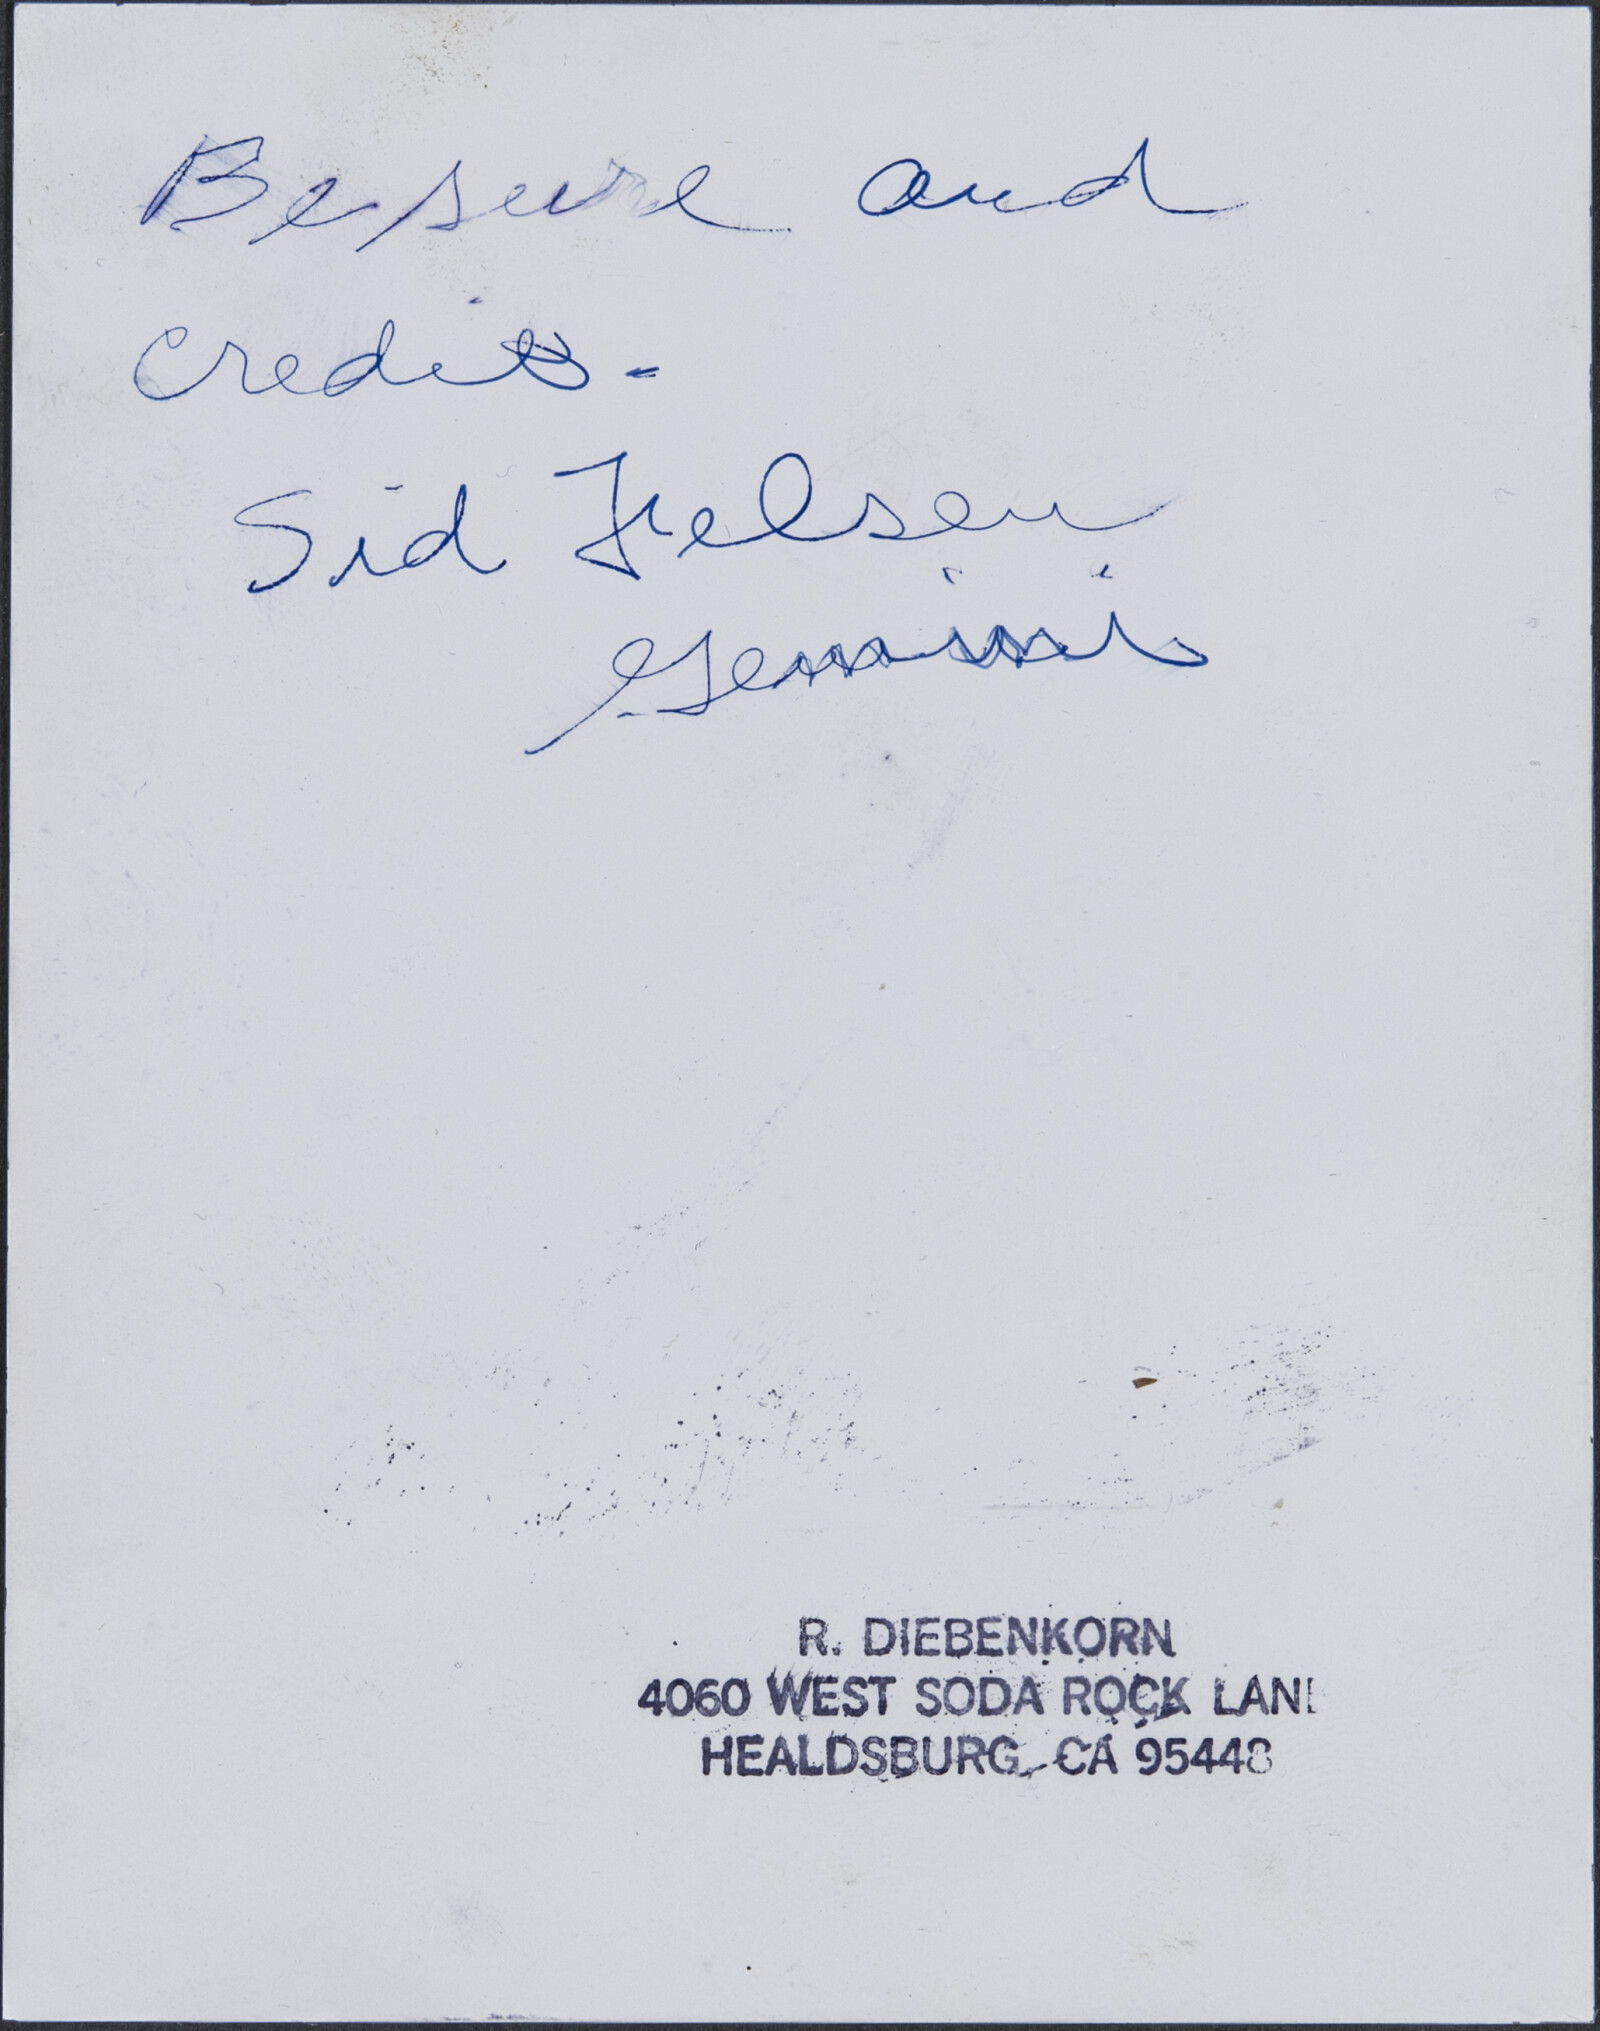 Be sure and
credit -
Sid Felsen
Gemini
R. DIEBENKORN
4060 WEST SODA ROCK LANE
HEALDSBURG, CA 95448